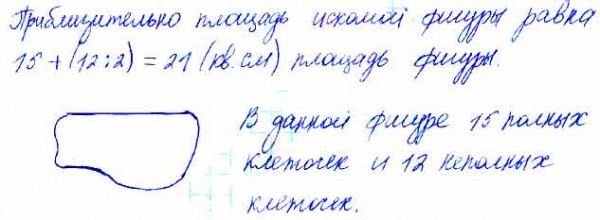 Приблизительно площадь искомой фигуры равна
15 + (12:2) = 21 (кв.см) площадь фигуры.
В данной фигуре 15 полных
клеточек и 12 неполных
клеточек.